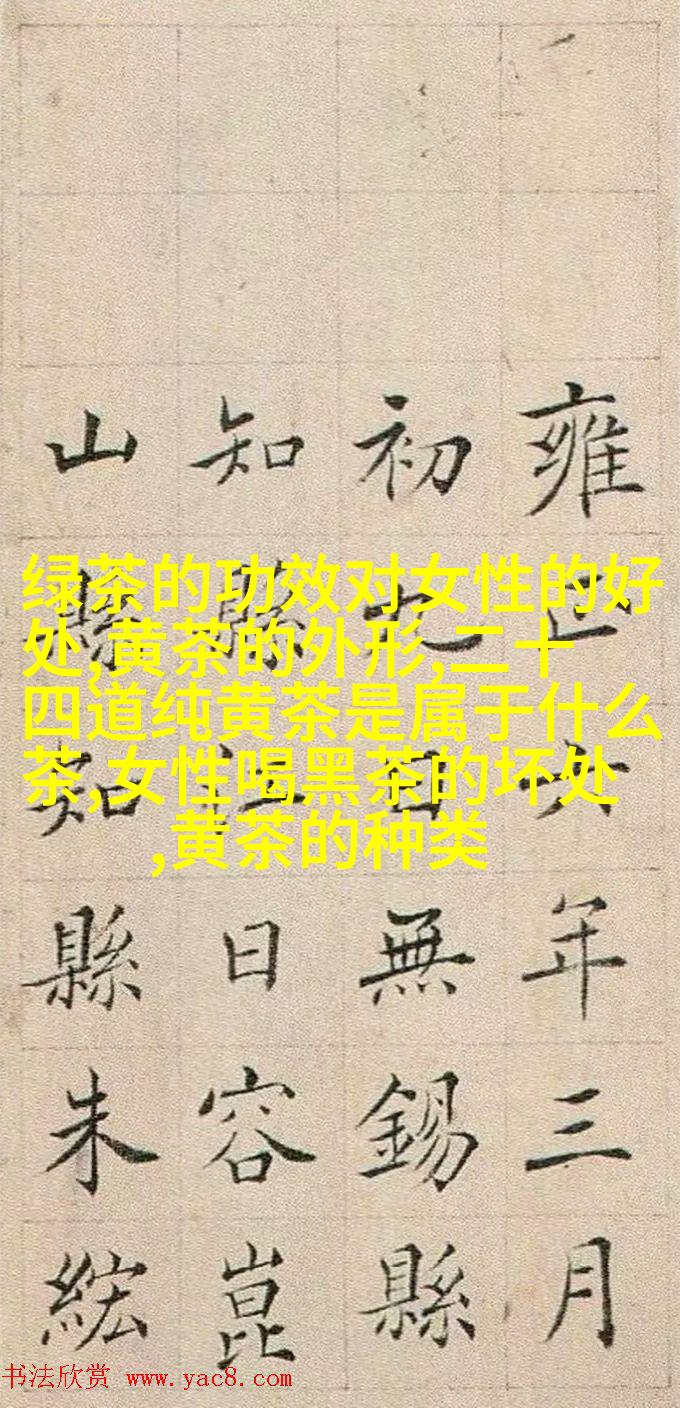 绿茶的功效对女性的好
处,黄茶的外形,二十
四道纯黄茶是属于什么
茶,女性喝黑茶的坏处
,黄茶的种类
雍正六年三月
初日無錫縣
知縣江日容崑
山縣知縣朱紘
书法欣赏 www.yac8.com